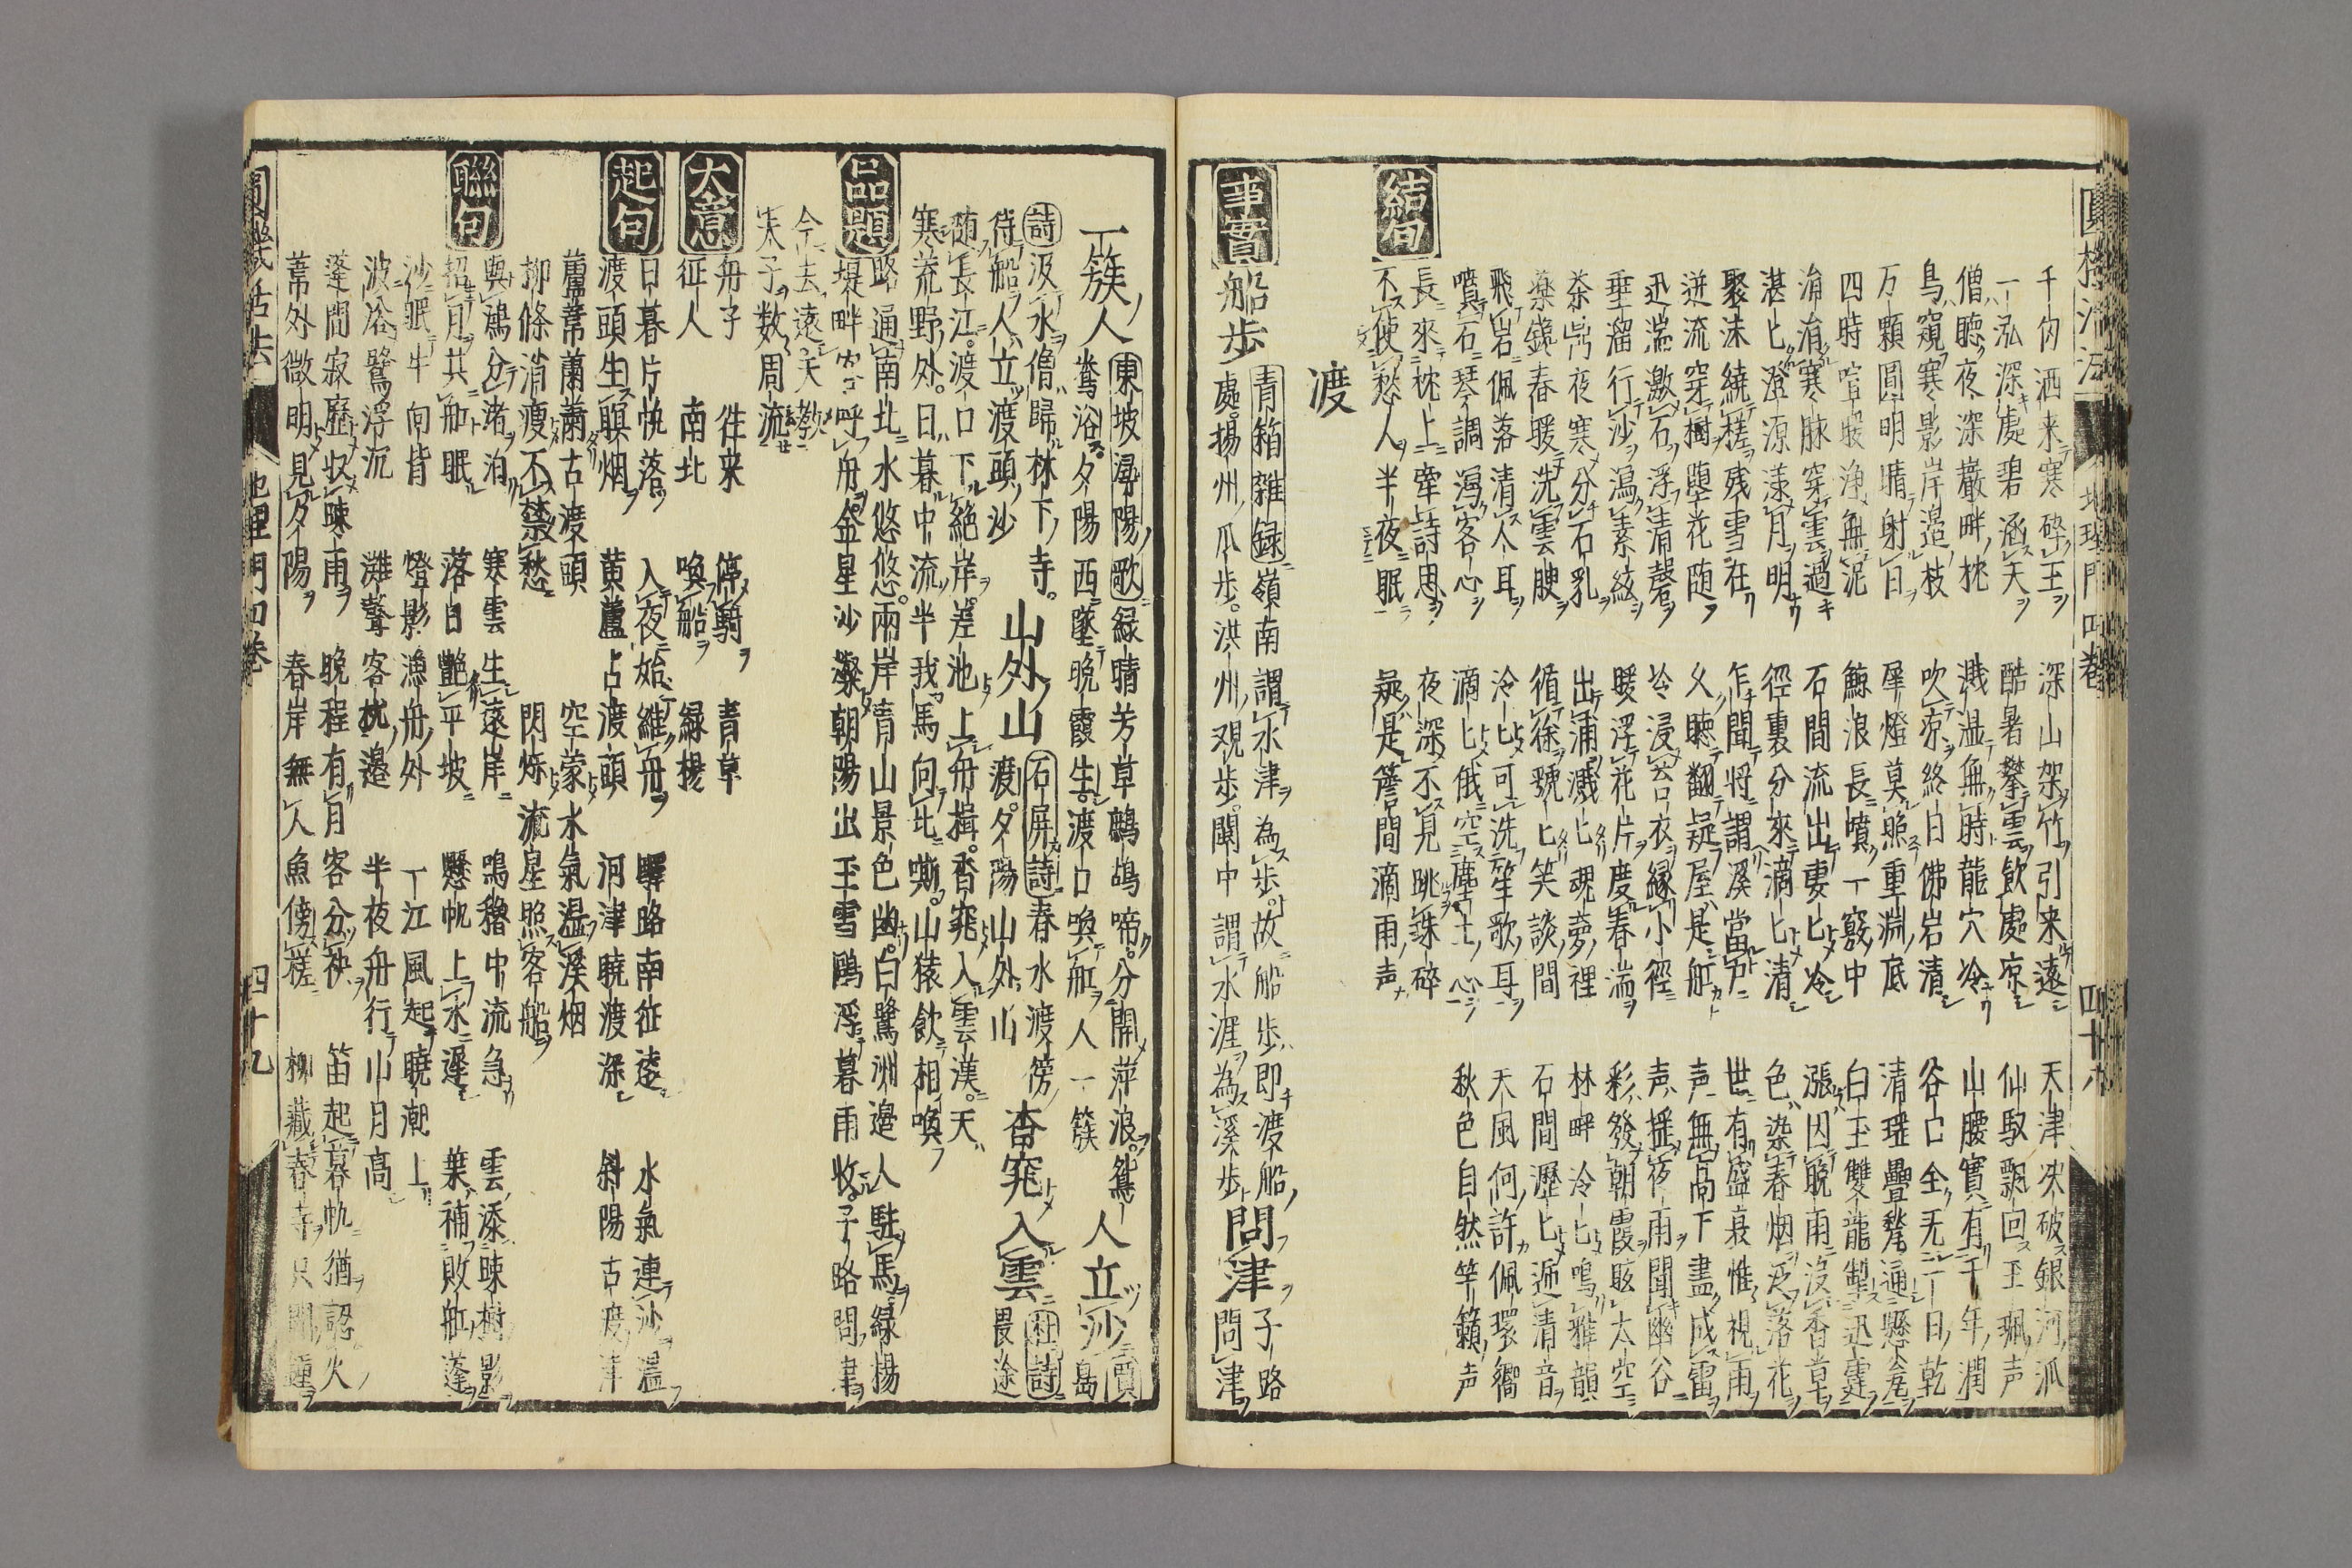 圓機活法 地理門四卷 四十八
千仞洒来寒碎玉 深山架竹引来遠 天津决破銀河派
一泓深處碧涵天 酷暑攀雲飲處凉 仙馭飄回玉珮声
僧聴夜深巌畔枕 濺温無時龍穴冷 山腰實有千年潤
鳥窺寒影岸邉枝 吹凉終日佛岩清 谷口全无一日乾
万顆圓明晴射日 犀燈莫照重淵底 清瑳疊甃通懸
四時喧暖浄無泥 鯨浪長噴一竅中 白玉雙龍掣迅霆
涓涓寒脉穿雲過 石間流出匕冷 漲因晩雨没香草
湛匕澄源漾月明 徑裏分來滴匕清 色染春烟泛落花
聚沫繞槎残雪在 乍聞将謂溪當戸 世有盛衰惟視雨
迸流穿樹墮花随 久聴翻疑屋是舡 声無高下盡成雷
迅湍激石浮清磬 冷浸苔衣縁小徑 声揺夜雨聞幽谷
垂溜行沙瀉素絃 暖浮花片度春湍 彩發朝霞眩太空
茶鼎夜寒分石乳 出浦濺匕魂夢裡 林畔冷匕鳴雅韻
薬鑱春暖洗雲腴 循徐號匕笑談間 石間瀝匕遞清音
飛岩佩落清人耳 冷匕可洗笙歌耳 天風何許佩環響
噴石琴調瀉客心 滴匕俄空塵土心 秋色自然竿籟声
結句 長來枕上牽詩思 夜深不見跳銖碎
不使愁人半夜眠 疑是簷間滴雨声
渡
事實 船歩 青箱雜録 嶺南謂水津為歩故船歩即渡船
處揚州瓜歩洪州観歩閩中謂水涯為溪歩 問津 子路問津
一簇人 東坡潯陽歌 緑晴芳草鷓鴣啼分開萍浪鴛
鴦浴夕陽西墜晩霞生渡口喚舡人一簇 人立沙 賈島
詩 汲水僧歸林下寺
待船人立渡頭沙 山外山 石屏詩 春水渡傍
渡夕陽山外山 杳窕入雲 杜詩 畏途
随長江渡口下絶岸差池上舟揖杳窕入雲漢天
寒荒野外日暮中流半我馬向北嘶山猿飲相喚
品題 路通南北水悠悠兩岸青山景色幽白鷺洲邉人駐馬緑楊
堤畔客呼舟金星沙燦朝陽出玉雪鷗浮暮雨收子路問津
今去遠天教
朱子数周流
大意 舟子 徃来 停騎 青草
征人 南北 喚船 緑楊
起句 日暮片帆落 入夜始維舟 驛路南征遠 水氣連沙温
渡頭生暝烟 黄蘆占渡頭 河津暁渡深 斜陽古渡津
蘆葦蕭蕭古渡頭 空蒙水氣温溪烟
柳條消痩不禁愁 閃爍流星照客船
聯句 與鴻分渚泊 寒雲生遠岸 鳴櫓中流急 雲添暕樹影
招月共舡眠 落日艶平坡 懸帆上水遲 葉補敗舡蓬
沙眠牛向背 燈影漁舟外 一江風起暁潮上
波浴鷺浮沉 灘聲客枕邉 半夜舟行山月高
蓬間寂歴收暕雨 晩程有月客分袂 笛起暮帆猶認火
葦外微明見夕陽 春岸無人魚傍槎 柳藏春寺只聞鐘
地理門四卷 四十九